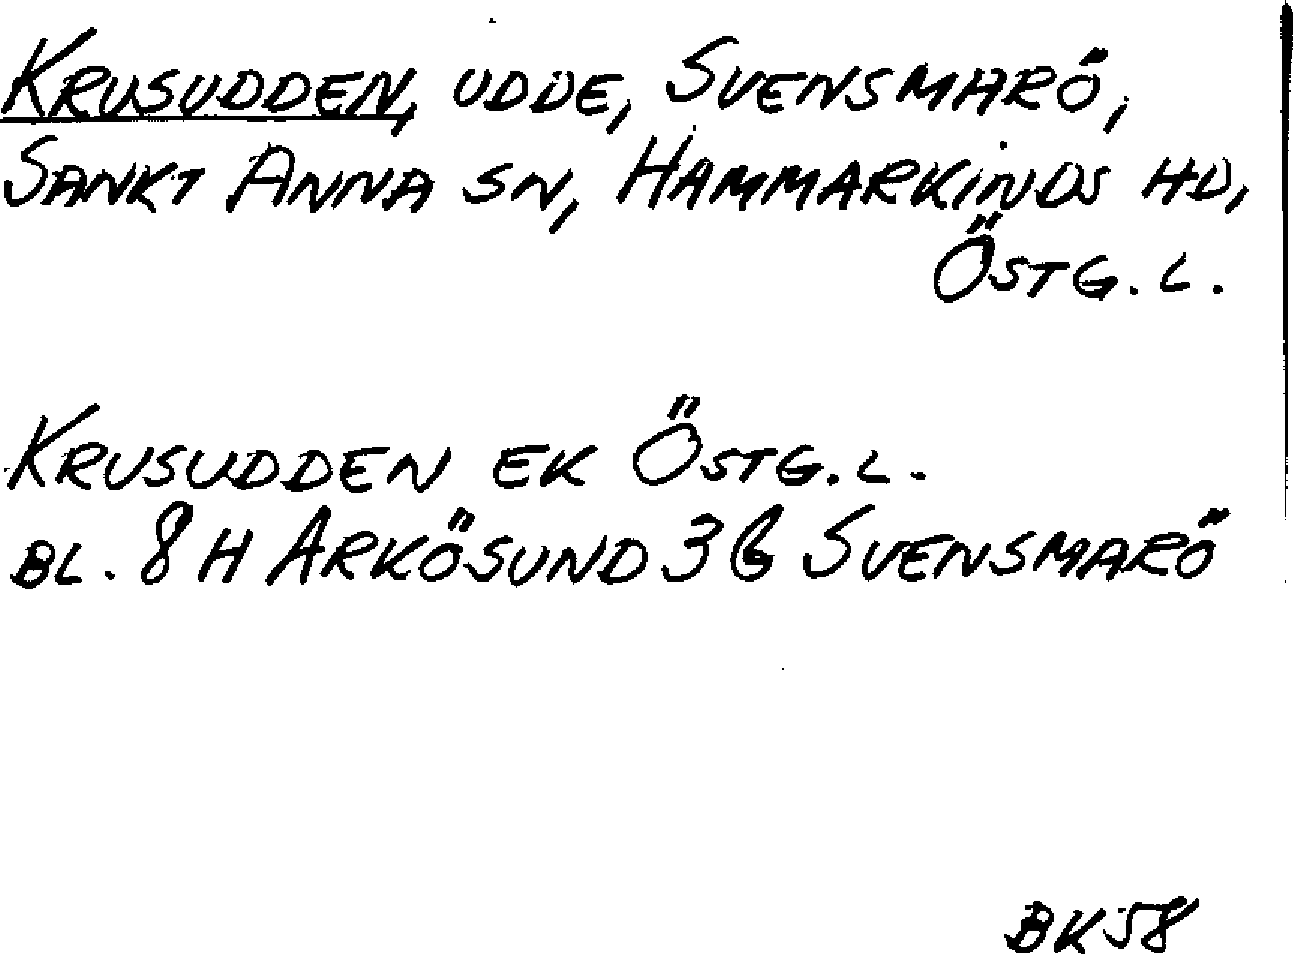 KRUSUDDEN, UDDE, SVENSMARÖ,
SANKT ANNA SN, HAMMARKINDS HD,
ÖSTG. L.
KRUSUDDEN EK ÖSTG. L.
BL. 8 H ARKÖSUND 3 G SVENSMARÖ
BK58